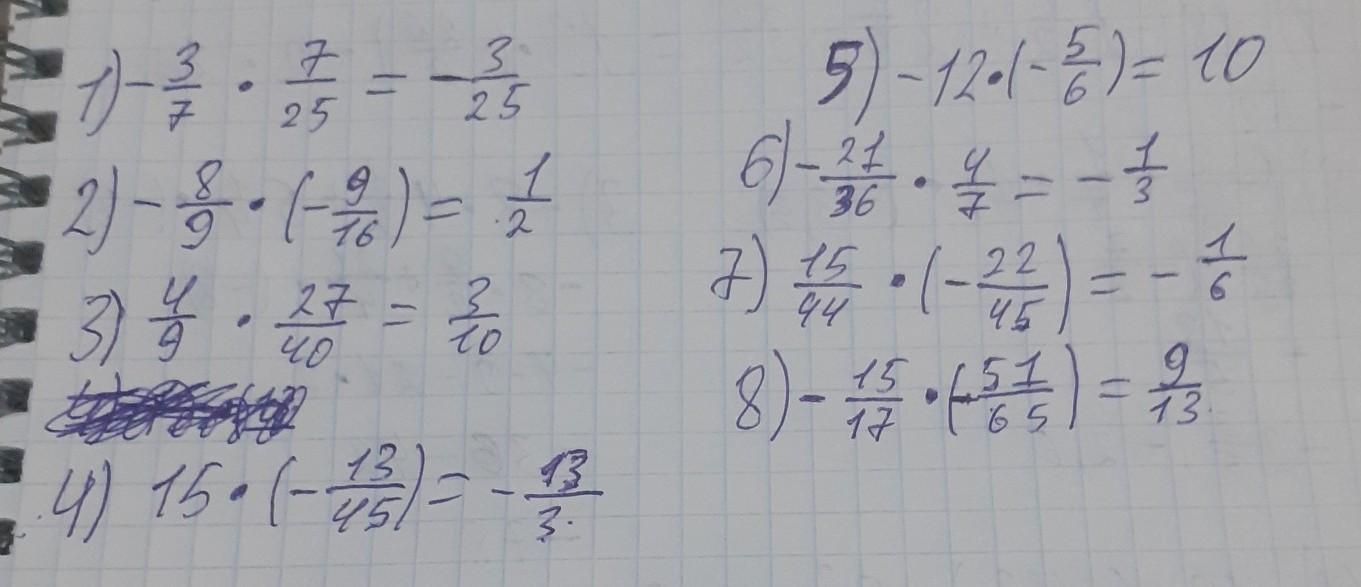 1) -3/7 · 7/25 = -3/25
2) -8/9 · (-9/16) = 1/2
3) 4/9 · 27/40 = 3/10
4) 15 · (-13/45) = -13/3
5) -12 · (-5/6) = 10
6) -21/36 · 4/7 = -1/3
7) 15/44 · (-22/45) = -1/6
8) -15/17 · (-51/65) = 9/13